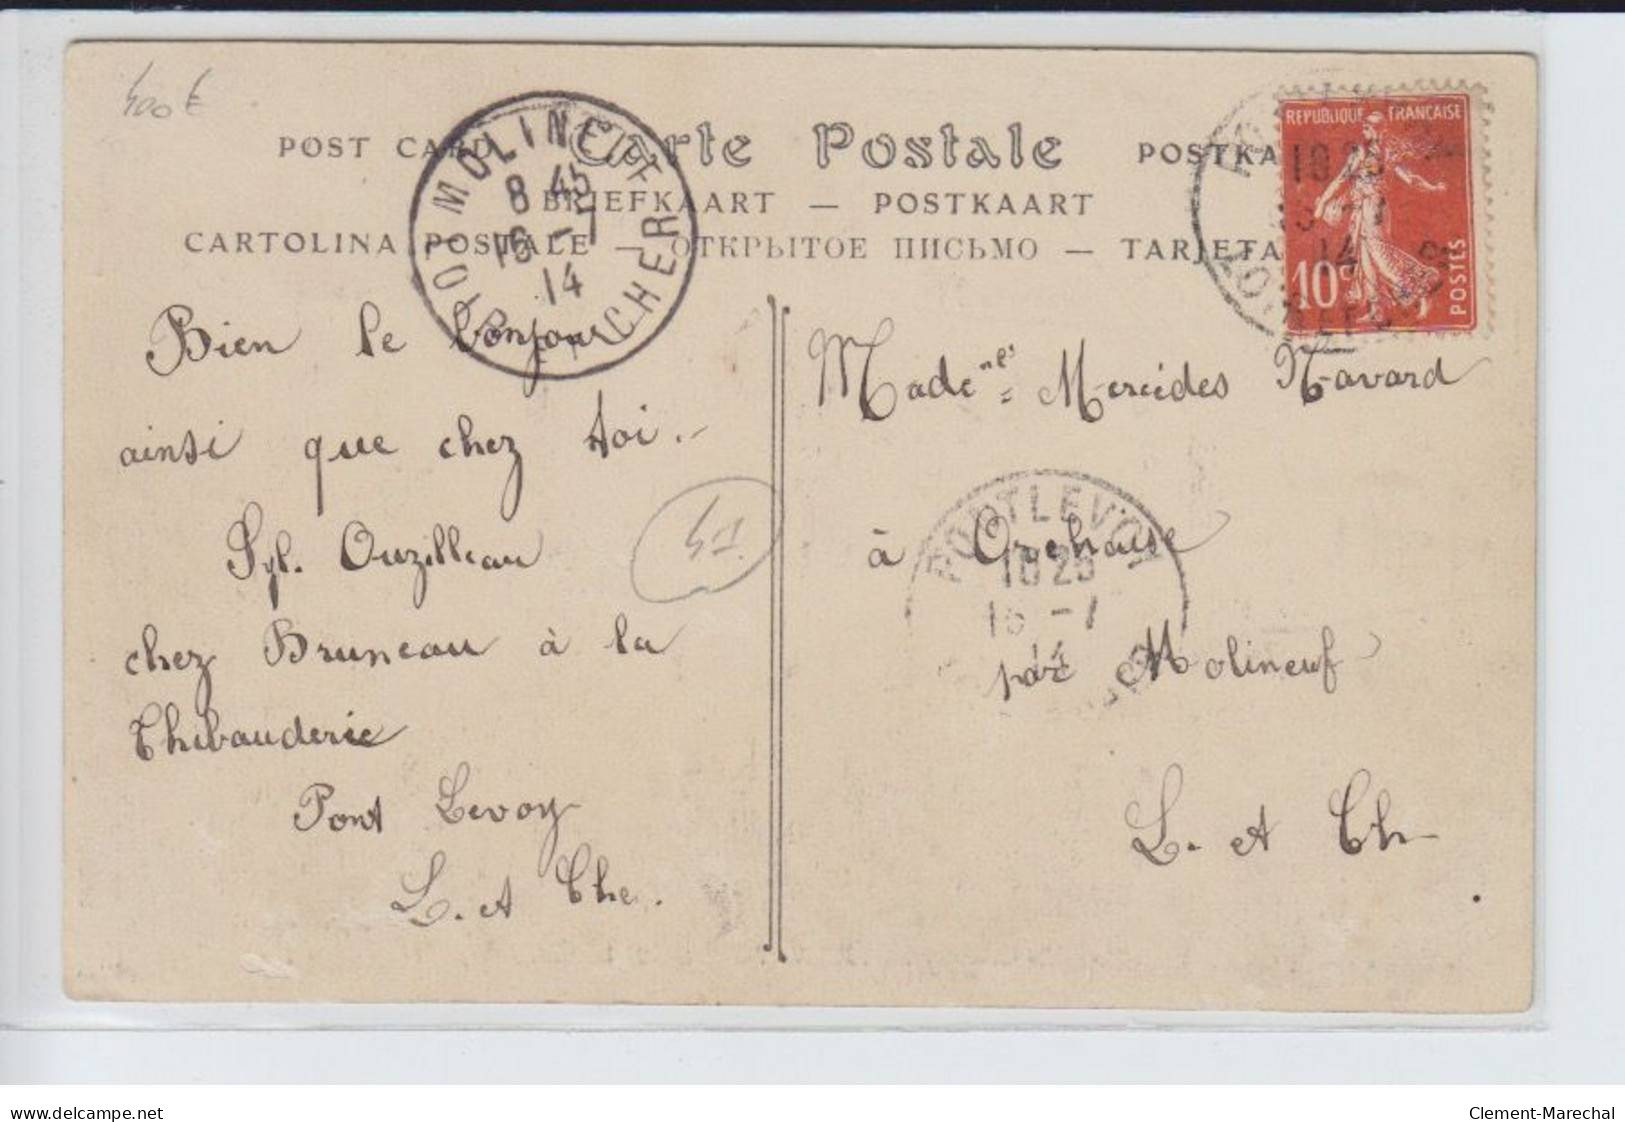 400€
POST CARD Carte Postale POSTKA
BRIEFKAART — POSTKAART
CARTOLINA POSTALE — ОТКРЫТОЕ ПИСЬМО — TARJETA
MOLINEUF
8 45
16 -7
14
LOIR-ET-CHER
REPUBLIQUE FRANÇAISE
10c
POSTES
18 25
14
Bien le bonjour
ainsi que chez toi.-
Syl. Ouzilleau
chez Bruneau à la
Thibauderie
Pont Levoy
L. et Che.
41
Made
Mercédes
à Orchaise
par Molineuf
L. et Ch
PONTLEVOY
18 25
15 -7
14
delcampe.net
Clement-Marechal